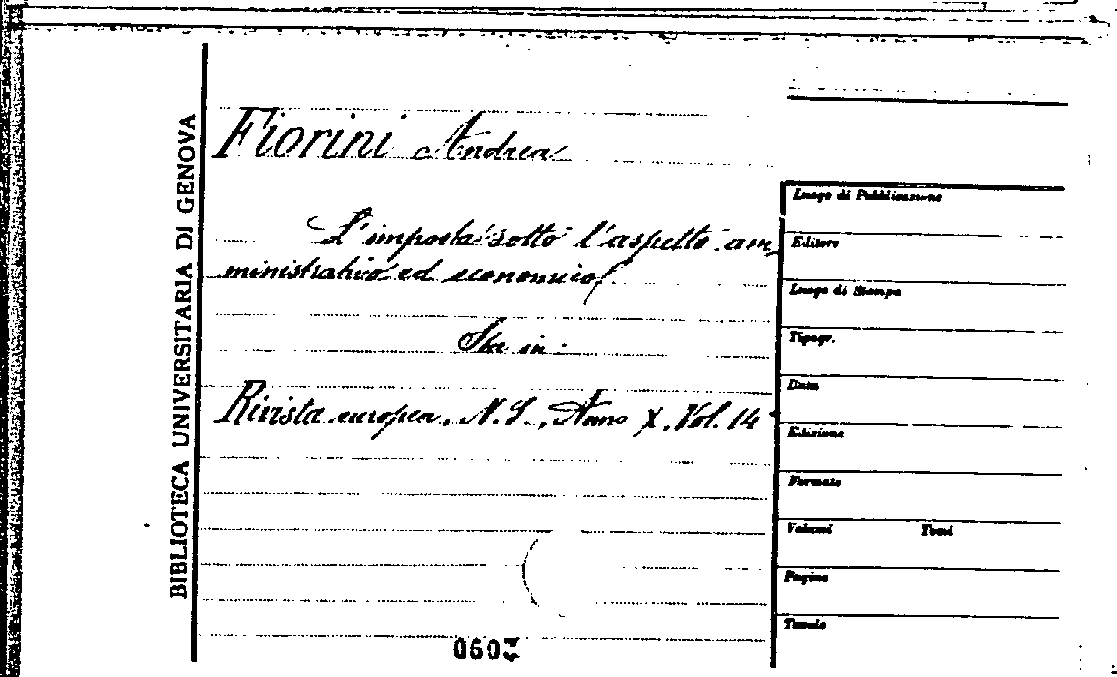 BIBLIOTECA UNIVERSITARIA DI GENOVA
Fiorini Andrea
L'imposta sotto l'aspetto am
ministrativo ed economico.
Sta in:
Rivista europea. N. S., Anno X, Vol. 14
Luogo di Pubblicazione
Editore
Luogo di Stampa
Tipogr.
Data
Edizione
Formato
Volumi Tomi
Pagine
Tavole